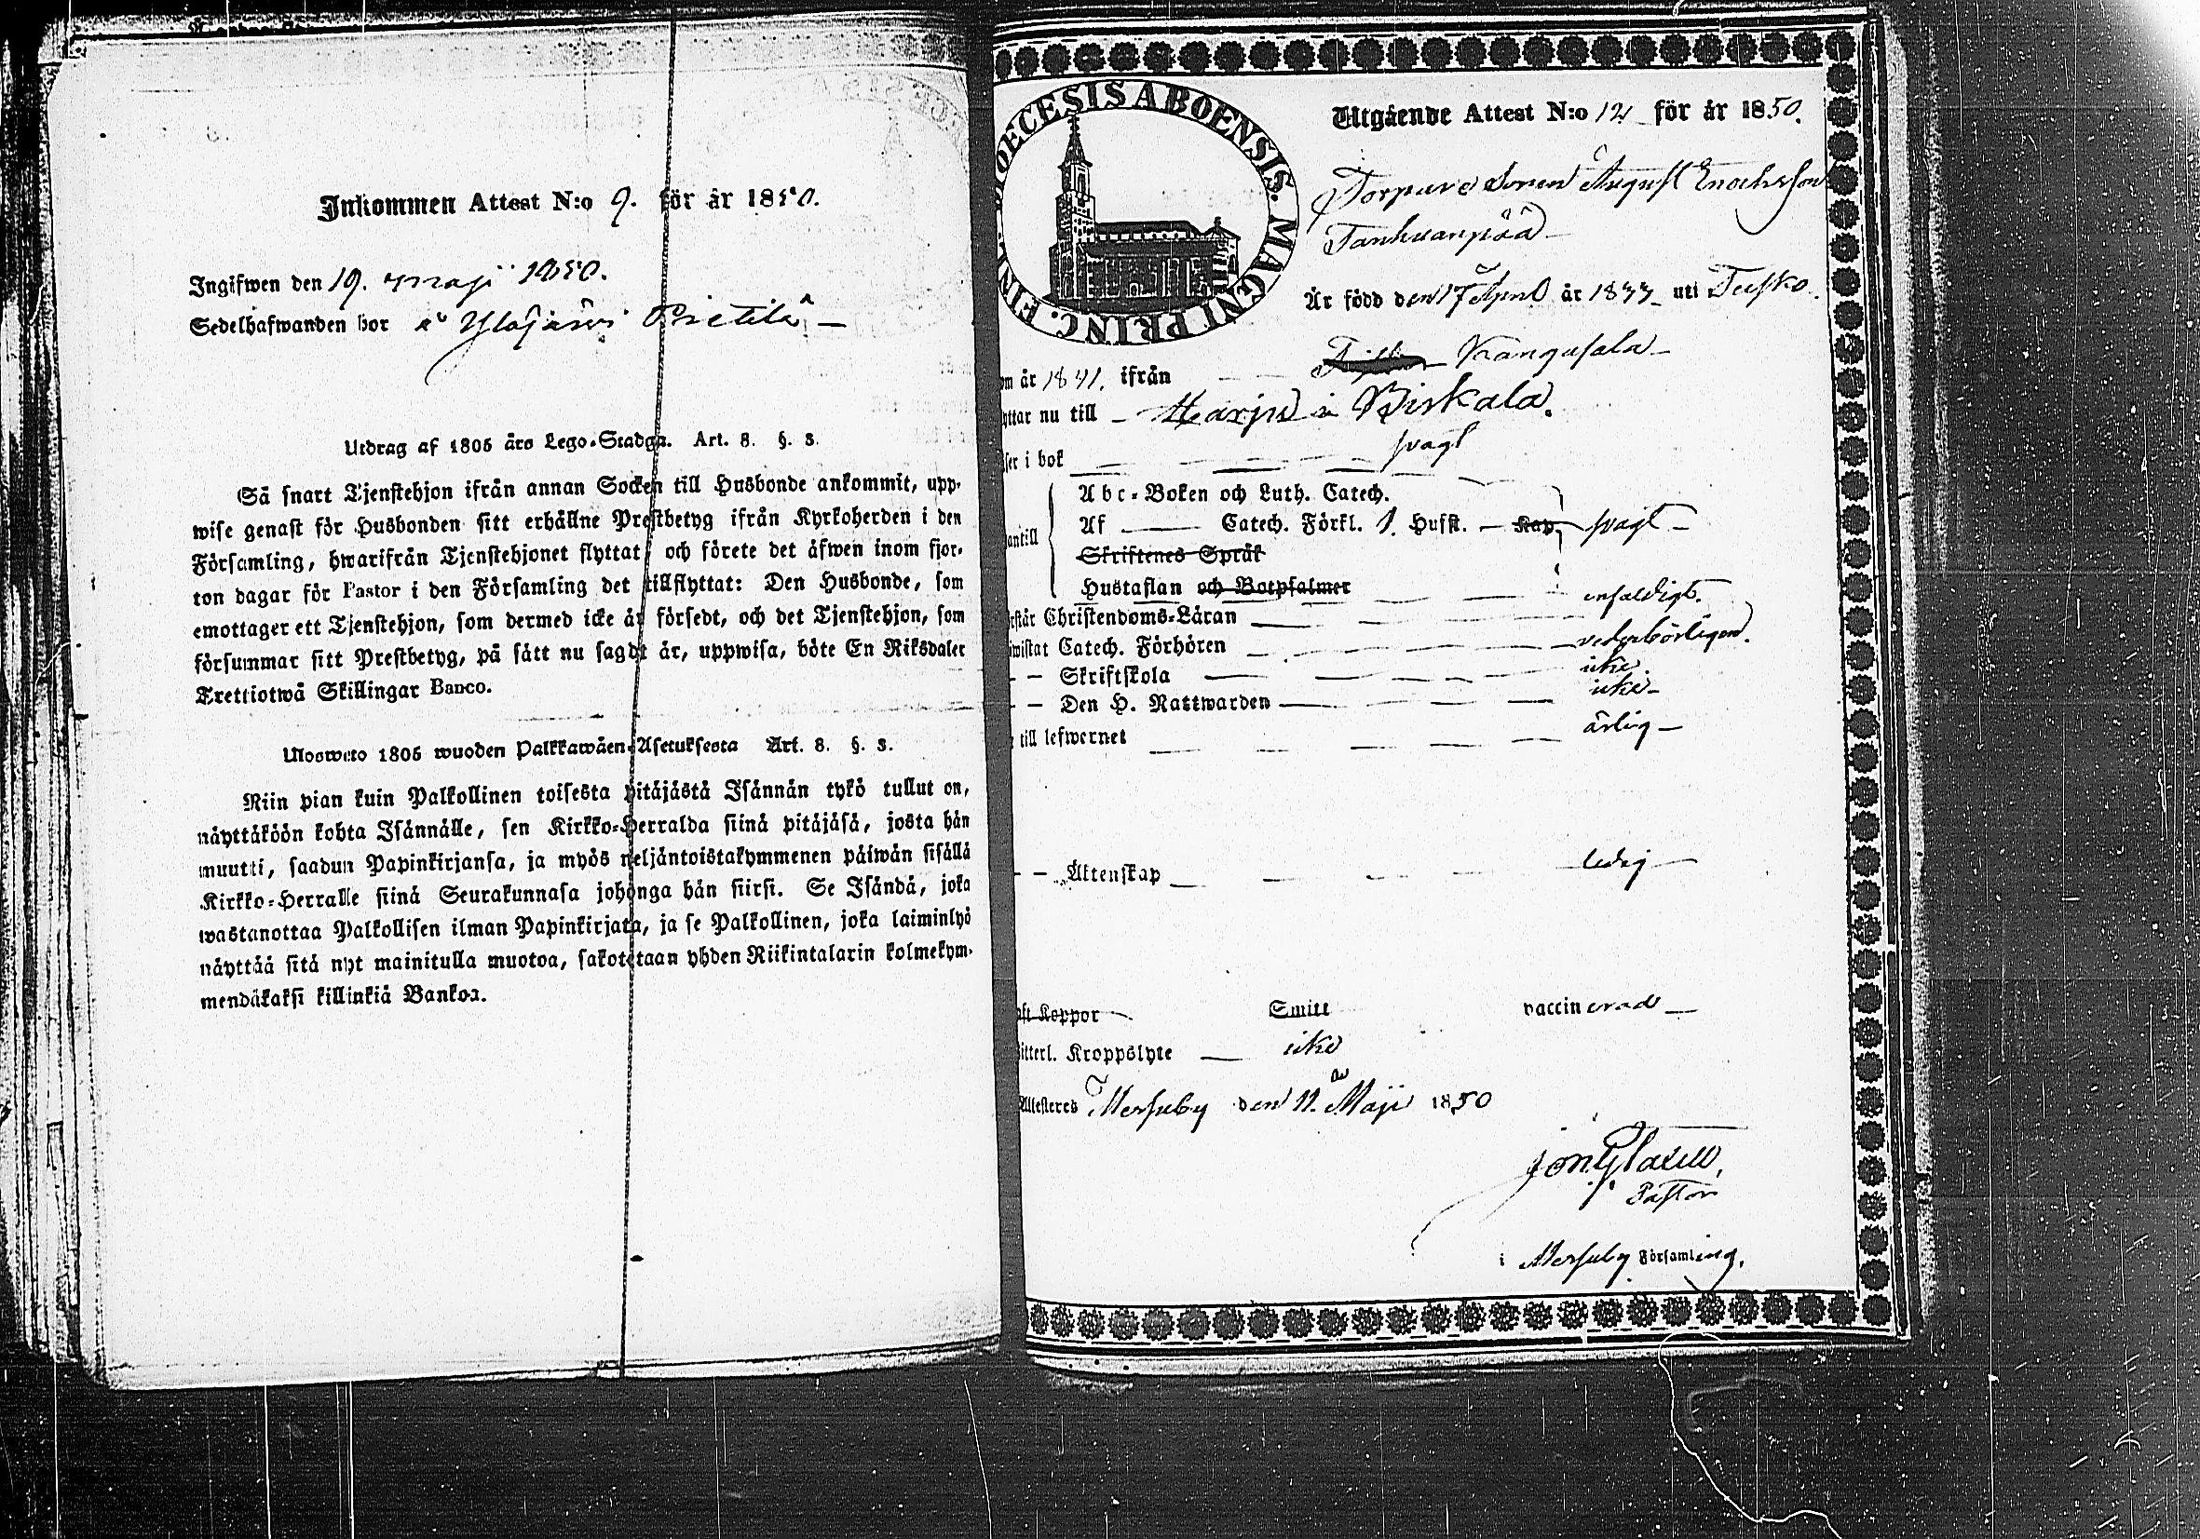 Inkommen Attest N:o 9. för år 1850.
Ingifwen den 19. maji 1850.
Sedelhafwanden bor å Ylöjärvi Pietilä
Utdrag af 1805 års Lego-Stadga. Art. 8. §. 3.
Så snart Tjenstehjon ifrån annan Socken till Husbonde ankommit, upp-
wise genast för Husbonden sitt erhållne Prestbetyg ifrån Kyrkoherden i den
Församling, hwarifrån Tjenstehjonet flyttat, och förete det äfwen inom fjor-
ton dagar för Pastor i den Församling det tillflyttat: Den Husbonde, som
emottager ett Tjenstehjon, som dermed icke är försedt, och det Tjenstehjon, som
försummar sitt Prestbetyg, på sätt nu sagdt är, uppwisa, böte En Riksdaler
Trettiotwå Skillingar Banco.
Ulosweto 1805 wuoden Palkkawäen-Asetuksesta Art. 8. §. 3.
Niin pian kuin Palkollinen toisesta pitäjästä Isännän tykö tullut on,
näyttäköön kohta Isännälle, sen Kirkko-Herralda siinä pitäjäsä, josta hän
muutti, saadun Papinkirjansa, ja myös neljäntoistakymmenen päiwän sisällä
Kirkko-Herralle siinä Seurakunnasa johonga hän siirsi. Se Isändä, joka
wastanottaa Palkollisen ilman Papinkirjata, ja se Palkollinen, joka laiminlyö
näyttää sitä nyt mainitulla muotoa, sakotetaan yhden Riikintalarin kolmekym-
mendäkaksi killinkiä Bankoa.
DIOECESIS ABOENSIS. MAGNI PRINC. FINL.
Utgående Attest N:o 12 för år 1850.
Torpare Sonen August Enochsson
Tanhuanpää
Är född den 17 April år 1833 uti Teisko.
om år 1841. ifrån Kangasala
yttar nu till Harju i Birkala.
ser i bok svagt
Abc-Boken och Luth. Catech.
antill Af Catech. Förkl. 1. Hufst. Kap. svagt
Skriftenes Språk
Hustaflan och Botpsalmer
rstår Christendoms-Läran enfaldigt.
iwistat Catech. Förhören vederbörligen.
Skriftskola icke
Den H. Nattwarden icke
till lefwernet ärlig
Äktenskap ledig
aft Koppor Smitt vaccinerad
itterl. Kroppslyte icke
Attesteres Messuby den 11 Maji 1850
Pastor
i Messuby Församling.